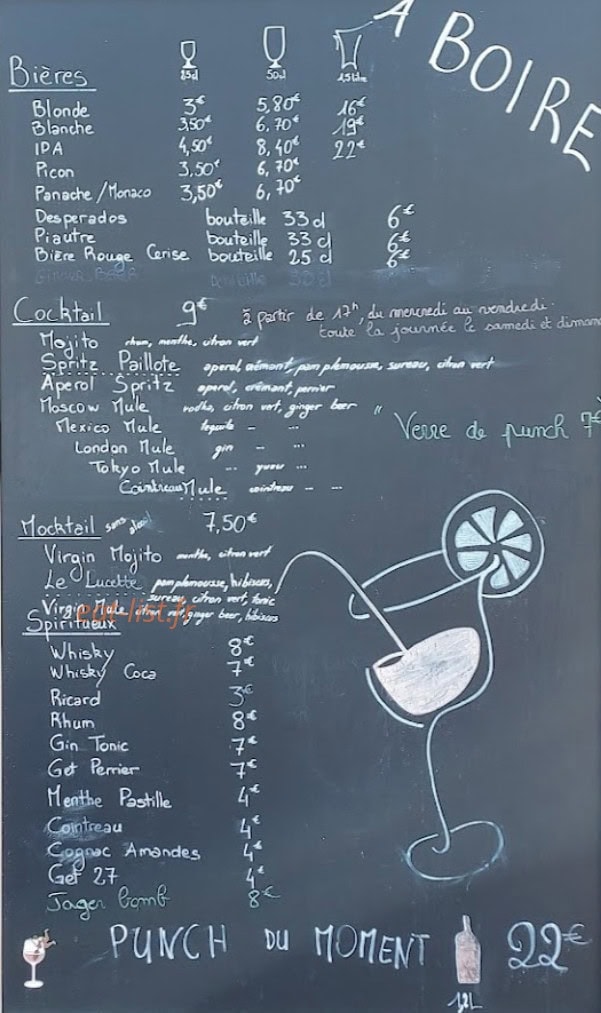 A BOIRE
Bières 25cl 50cl 1,5 litre
Blonde 3€ 5,80€ 16€
Blanche 3,50€ 6,70€ 19€
IPA 4,50€ 8,40€ 22€
Picon 3,50€ 6,70€
Panache/Monaco 3,50€ 6,70€
Desperados bouteille 33 cl 6€
Piautre bouteille 33 cl 6€
Bière Rouge Cerise bouteille 25 cl 6€
GINGER BEER bouteille
Cocktail 9€ à partir de 17h, du mercredi au vendredi
toute la journée le samedi et dimanc
Mojito rhum, menthe, citron vert
Spritz Paillote aperol, crémant, pamplemousse, sureau, citron vert
Aperol Spritz aperol, crémant, perrier
Moscow Mule vodka, citron vert, ginger beer
Mexico Mule tequila - ...
" Verre de punch 7€
London Mule gin - ...
Tokyo Mule ... yuzu ...
Cointreau Mule cointreau - ...
Mocktail sans alcool 7,50€
Virgin Mojito menthe, citron vert
Le Lucette pamplemousse, hibiscus,
sureau, citron vert, tonic
Virgin Mule citron vert, ginger beer, hibiscus
eat-list.fr
Spiritueux
Whisky 8€
Whisky Coca 7€
Ricard 3€
Rhum 8€
Gin Tonic 7€
Get Perrier 7€
Menthe Pastille 4€
Cointreau 4€
Cognac Amandes 4€
Get 27 4€
Jager bomb 8€
PUNCH DU MOMENT 22€
1,2L